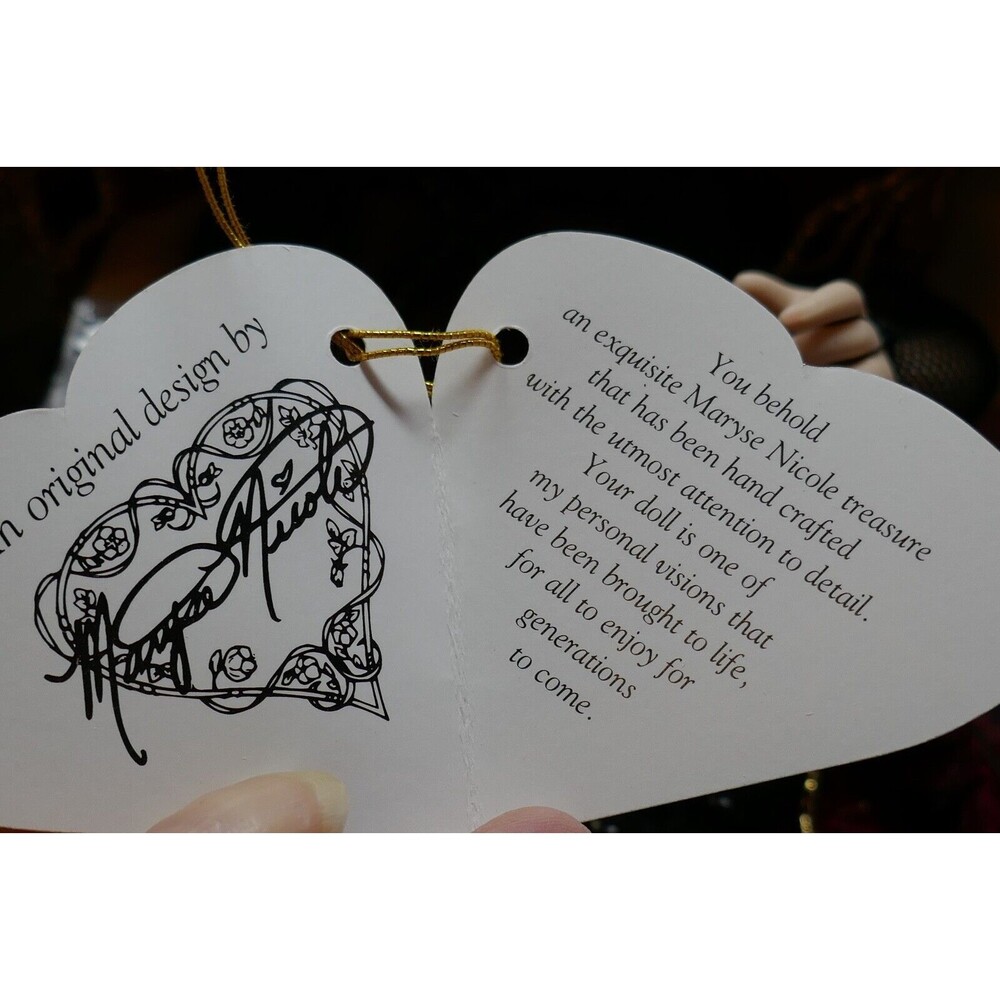 n original design by
Maryse Nicole
You behold
an exquisite Maryse Nicole treasure
that has been hand crafted
with the utmost attention to detail.
Your doll is one of
my personal visions that
have been brought to life,
for all to enjoy for
generations
to come.